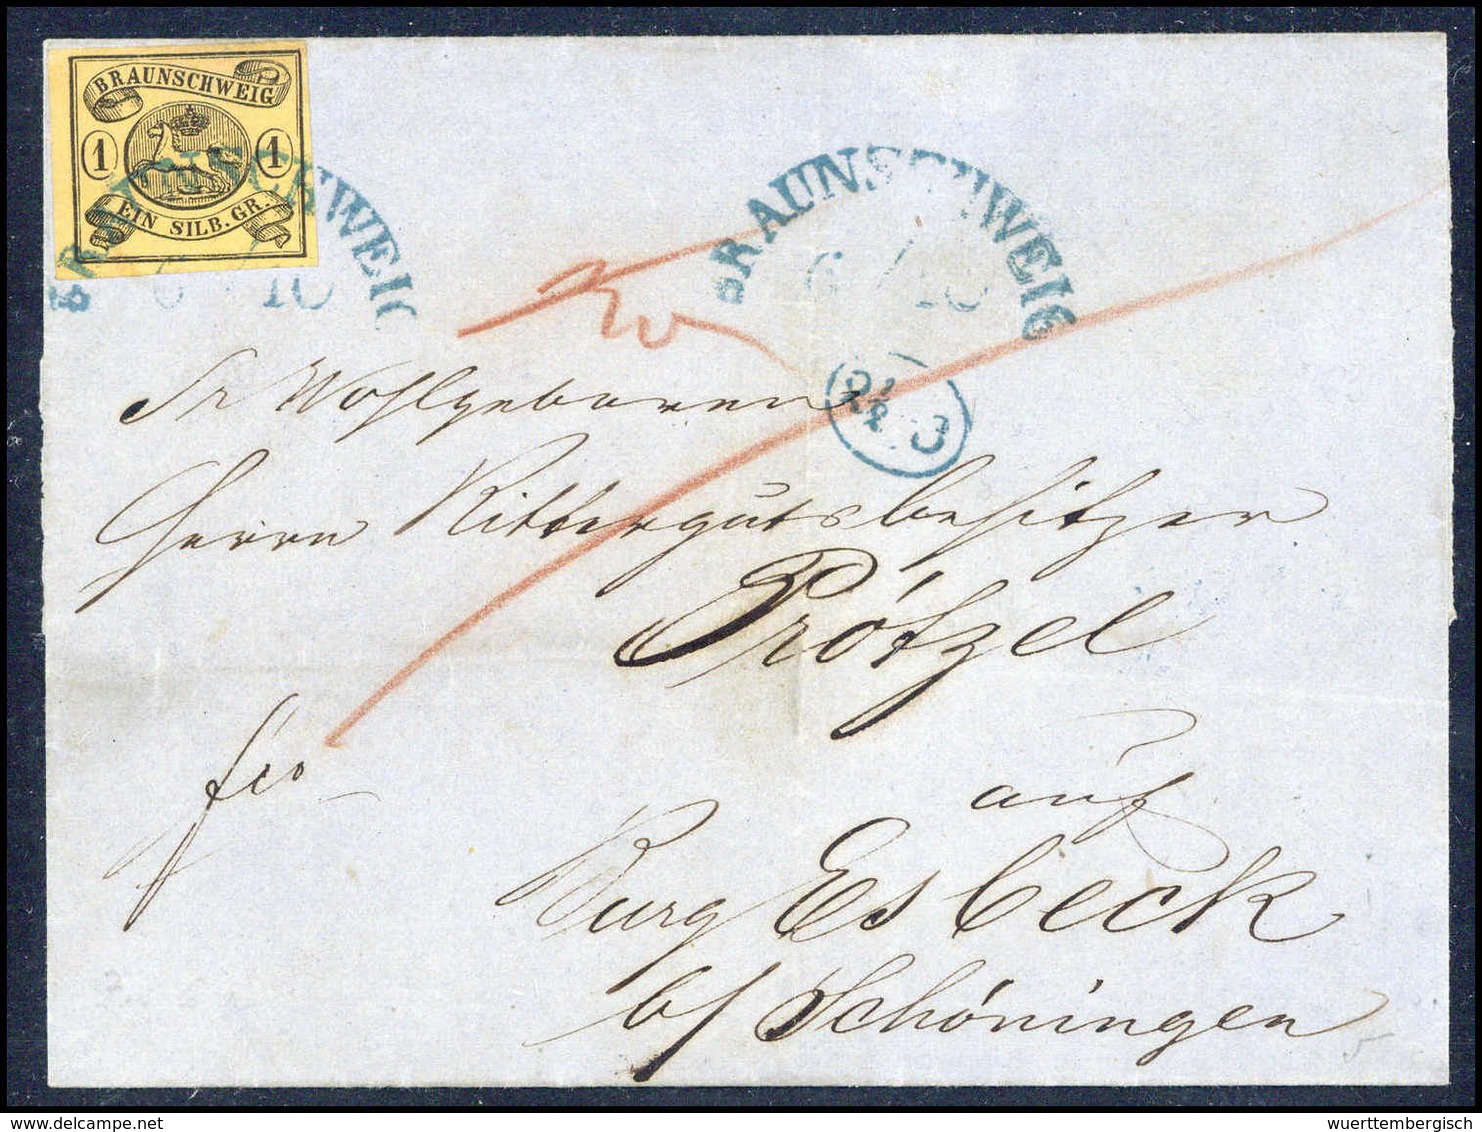 BRAUNSCHWEIG
1 1
EIN SILB. GR.
BRAUNSCHWEIG
6 / 10
BRAUNSCHWEIG
6 / 10
Sr Wohlgeboren
Herrn Rittergutsbesitzer
Prötzel
fro
auf
Burg Esbeck
b/ Schöningen
© wuerttembergisch